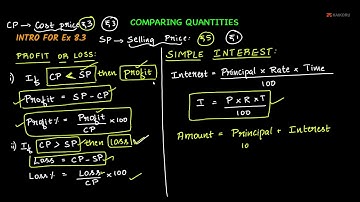 CP → Cost price ₹3 ₹3
COMPARING QUANTITIES
KAKORS
INTRO FOR Ex 8.3
SP → Selling Price: ₹5 ₹1
PROFIT OR LOSS:
i) If CP < SP then Profit
Profit = SP - CP
Profit % = Profit/CP × 100
ii) If CP > SP then Loss
Loss = CP - SP
Loss % = Loss/CP × 100
SIMPLE INTEREST:
Interest = Principal × Rate × Time / 100
I = P × R × T / 100
Amount = Principal + Interest
10